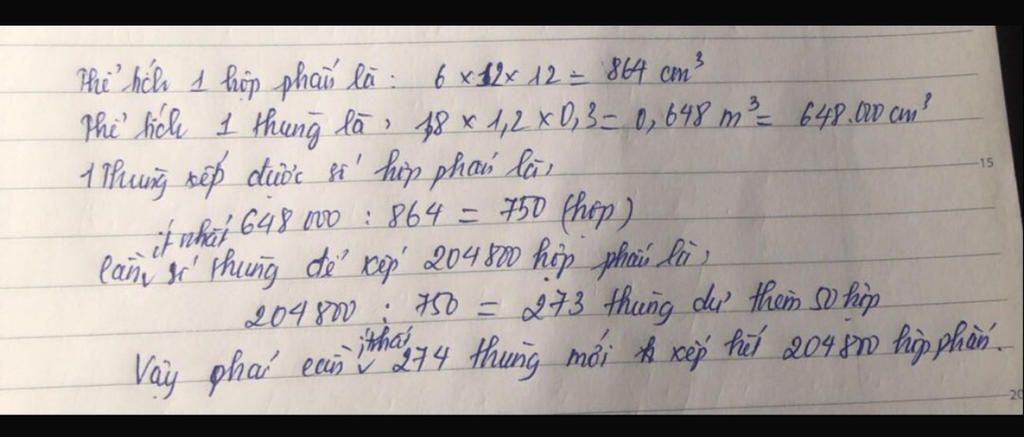 Thể tích 1 hộp phấn là: 6 x 12 x 12 = 864 cm³
Thể tích 1 thùng là: 1,8 x 1,2 x 0,3 = 0,648 m³ = 648.000 cm³
1 Thùng xếp được số hộp phấn là,
648 000 : 864 = 750 (hộp)
Cần ít nhất số thùng để xếp 204800 hộp phấn là,
204800 : 750 = 273 thùng dư thêm 50 hộp
Vậy phải cần ít nhất 274 thùng mới xếp hết 204800 hộp phấn.
15
20